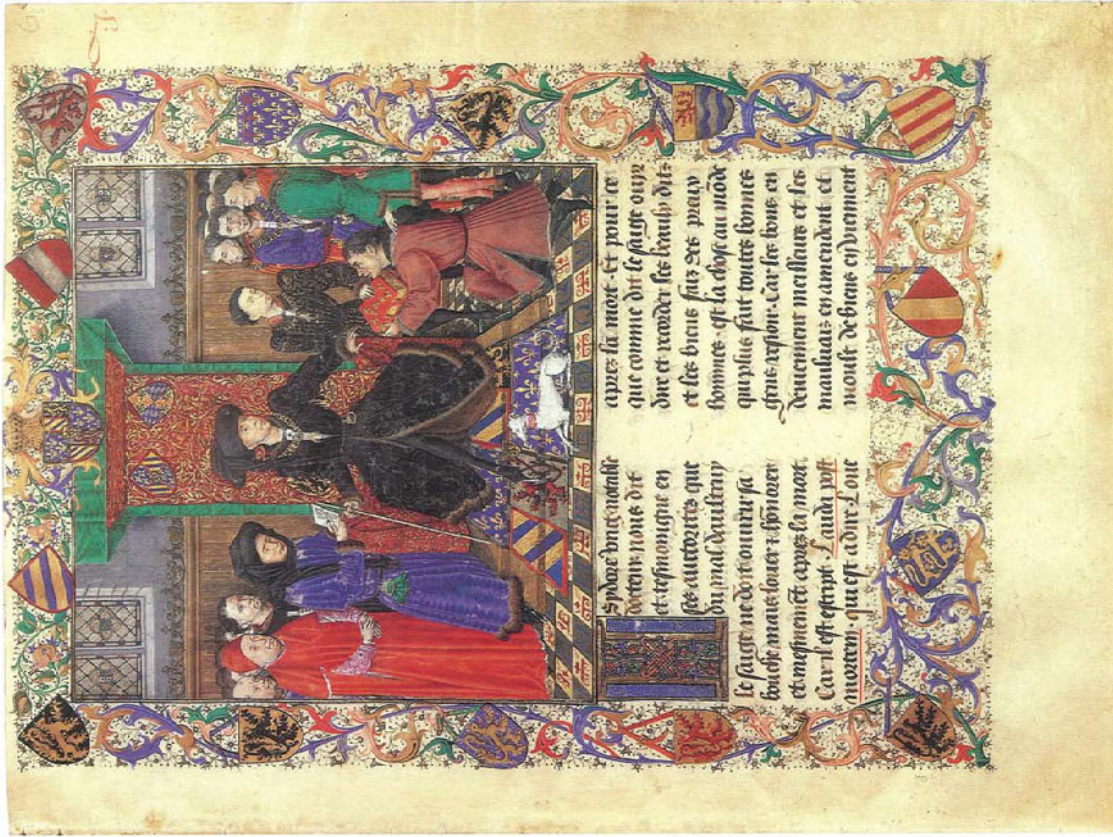 Isydore vng notable
docteur nous dit
et tesmoingne en
ses auctoritez que
du mal daultruy
le saige ne doit ouurir sa
bouche mais louer et honnorer
et mesment et apres la mort
Car il est escript Lauda post
mortem qui est a dire Loue
apres la mort Et pour ce
que comme dit le saige ouyr
dire et recorder les beaulx dits
et les biens faiz des preux
hommes est la chose au mōde
qui plus fait toutes bonnes
gens Car les bons en
deuiennent meilleurs et les
mauluais en amendent et
moult de biens en viennent